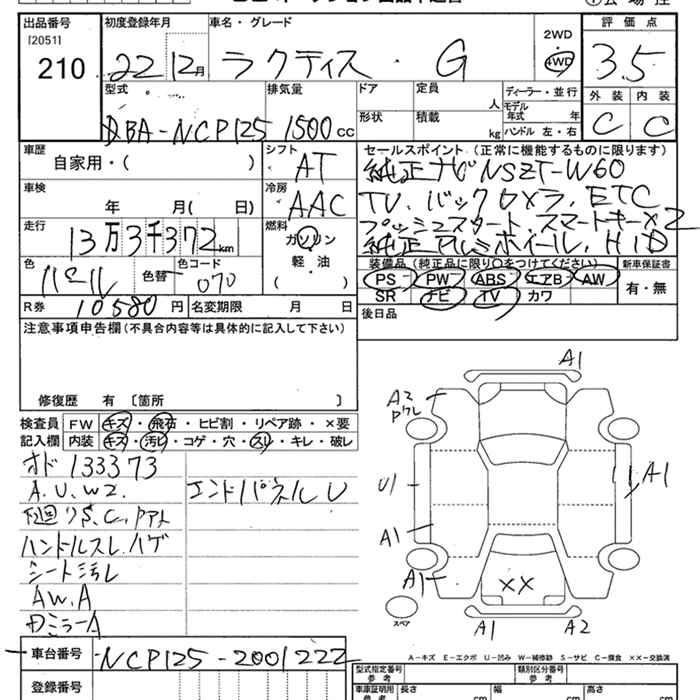 出品番号 初度登録年月 車名・グレード 2WD 評価点
[2051] 210 22 12月 ラクティス・G 4WD 3.5
型式 排気量 ドア 定員 人 ディーラー・並行 外装 内装
DBA-NCP125 1500cc 形状 積載 kg モデル年式 年 ハンドル 左・右 C C
車歴 シフト セールスポイント (正常に機能するものに限ります)
自家用・( ) AT 純正ナビNSZT-W60
車検 冷房 TV、バックカメラ、ETC
年 月( 日) AAC プッシュスタート、スマートキー×2
走行 燃料 純正アルミホイール、HID
13万3千372km ガソリン
色 色替 色コード 軽・油 装備品 (純正品に限り○をつけてください) 新車保証書
パール 070 ( ) PS PW ABS エアB AW 有・無
R券 10580円 名変期限 月 日 SR ナビ TV カワ
注意事項申告欄(不具合内容等は具体的に記入して下さい) 後日品
修復歴 有 〔箇所 〕
検査員 FW キズ・飛石・ヒビ割・リペア跡・×要
記入欄 内装 キズ・汚レ・コゲ・穴・スレ・キレ・破レ
オド 133373
A.U.W2. エンドパネルU
下廻リS.C.
ハンドルスレ.ハゲ
シート汚レ
AW.A
ミラーA
車台番号 NCP125-2001222
登録番号
A1
A2
U1
A1
A1
A1
××
スペア
A1 A2
A-キズ E-エクボ U-凹み W-補修跡 S-サビ C-腐食 ××-交換済
型式指定番号 参考 類別区分番号 参考
車庫証明用 参考 長さ cm 幅 cm 高さ cm